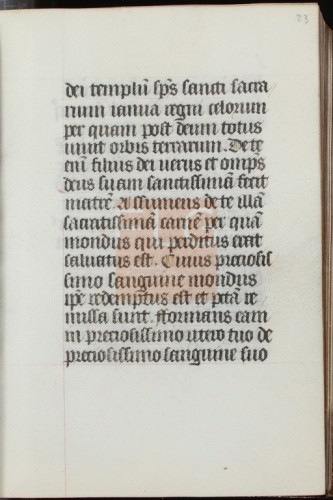 23
dei templū sp̄s sancti sacra
rium ianua regni celorum
per quam post deum totus
uiuit orbis terrarum. De te
enī filius dei uerus et omp̄s
deus suam sanctissimā fecit
matrē. Assumens de te illā
sacratissimā carnē per quā
mondus qui perditus erat
saluatus est. Cuius preciosis
simo sanguine mondus
ip̄e redemptus est et pc̄ta re
missa sunt. fformans eam
in preciosissimo utero tuo de
preciosissimo sanguine suo